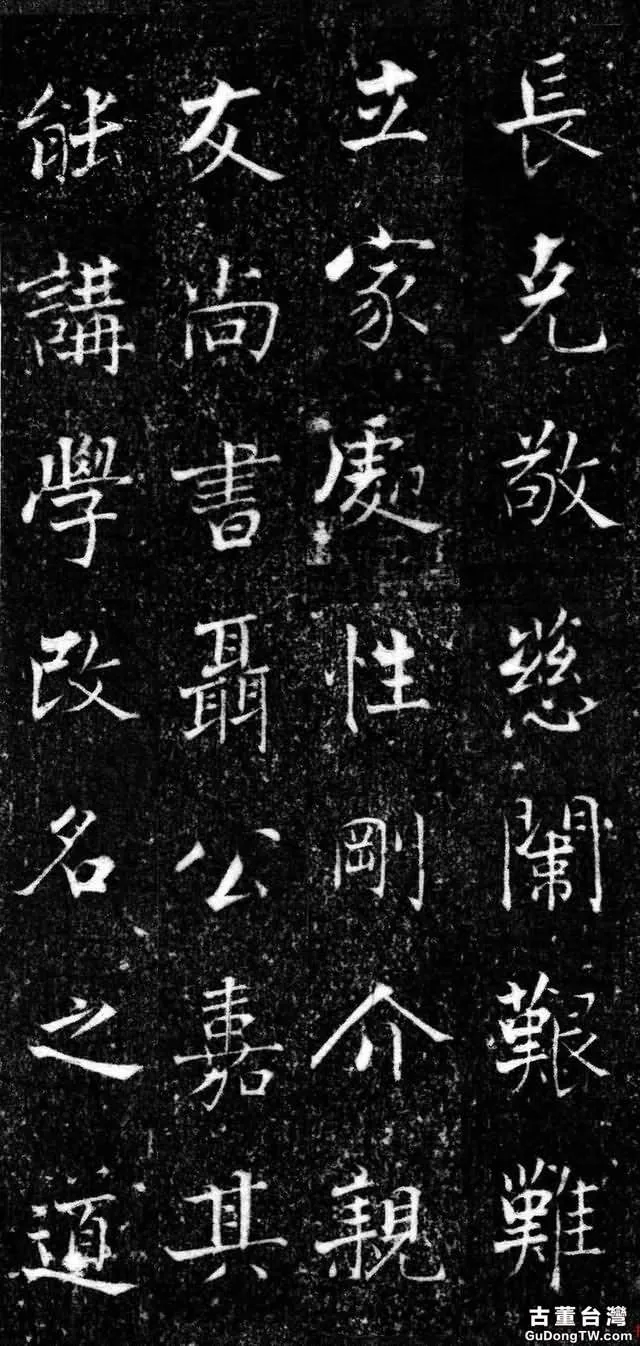 長克敬慈闌艱難
立家處性剛介親
友尚書聶公嘉其
能講學改名之道
古董台灣
GuDongTW.com